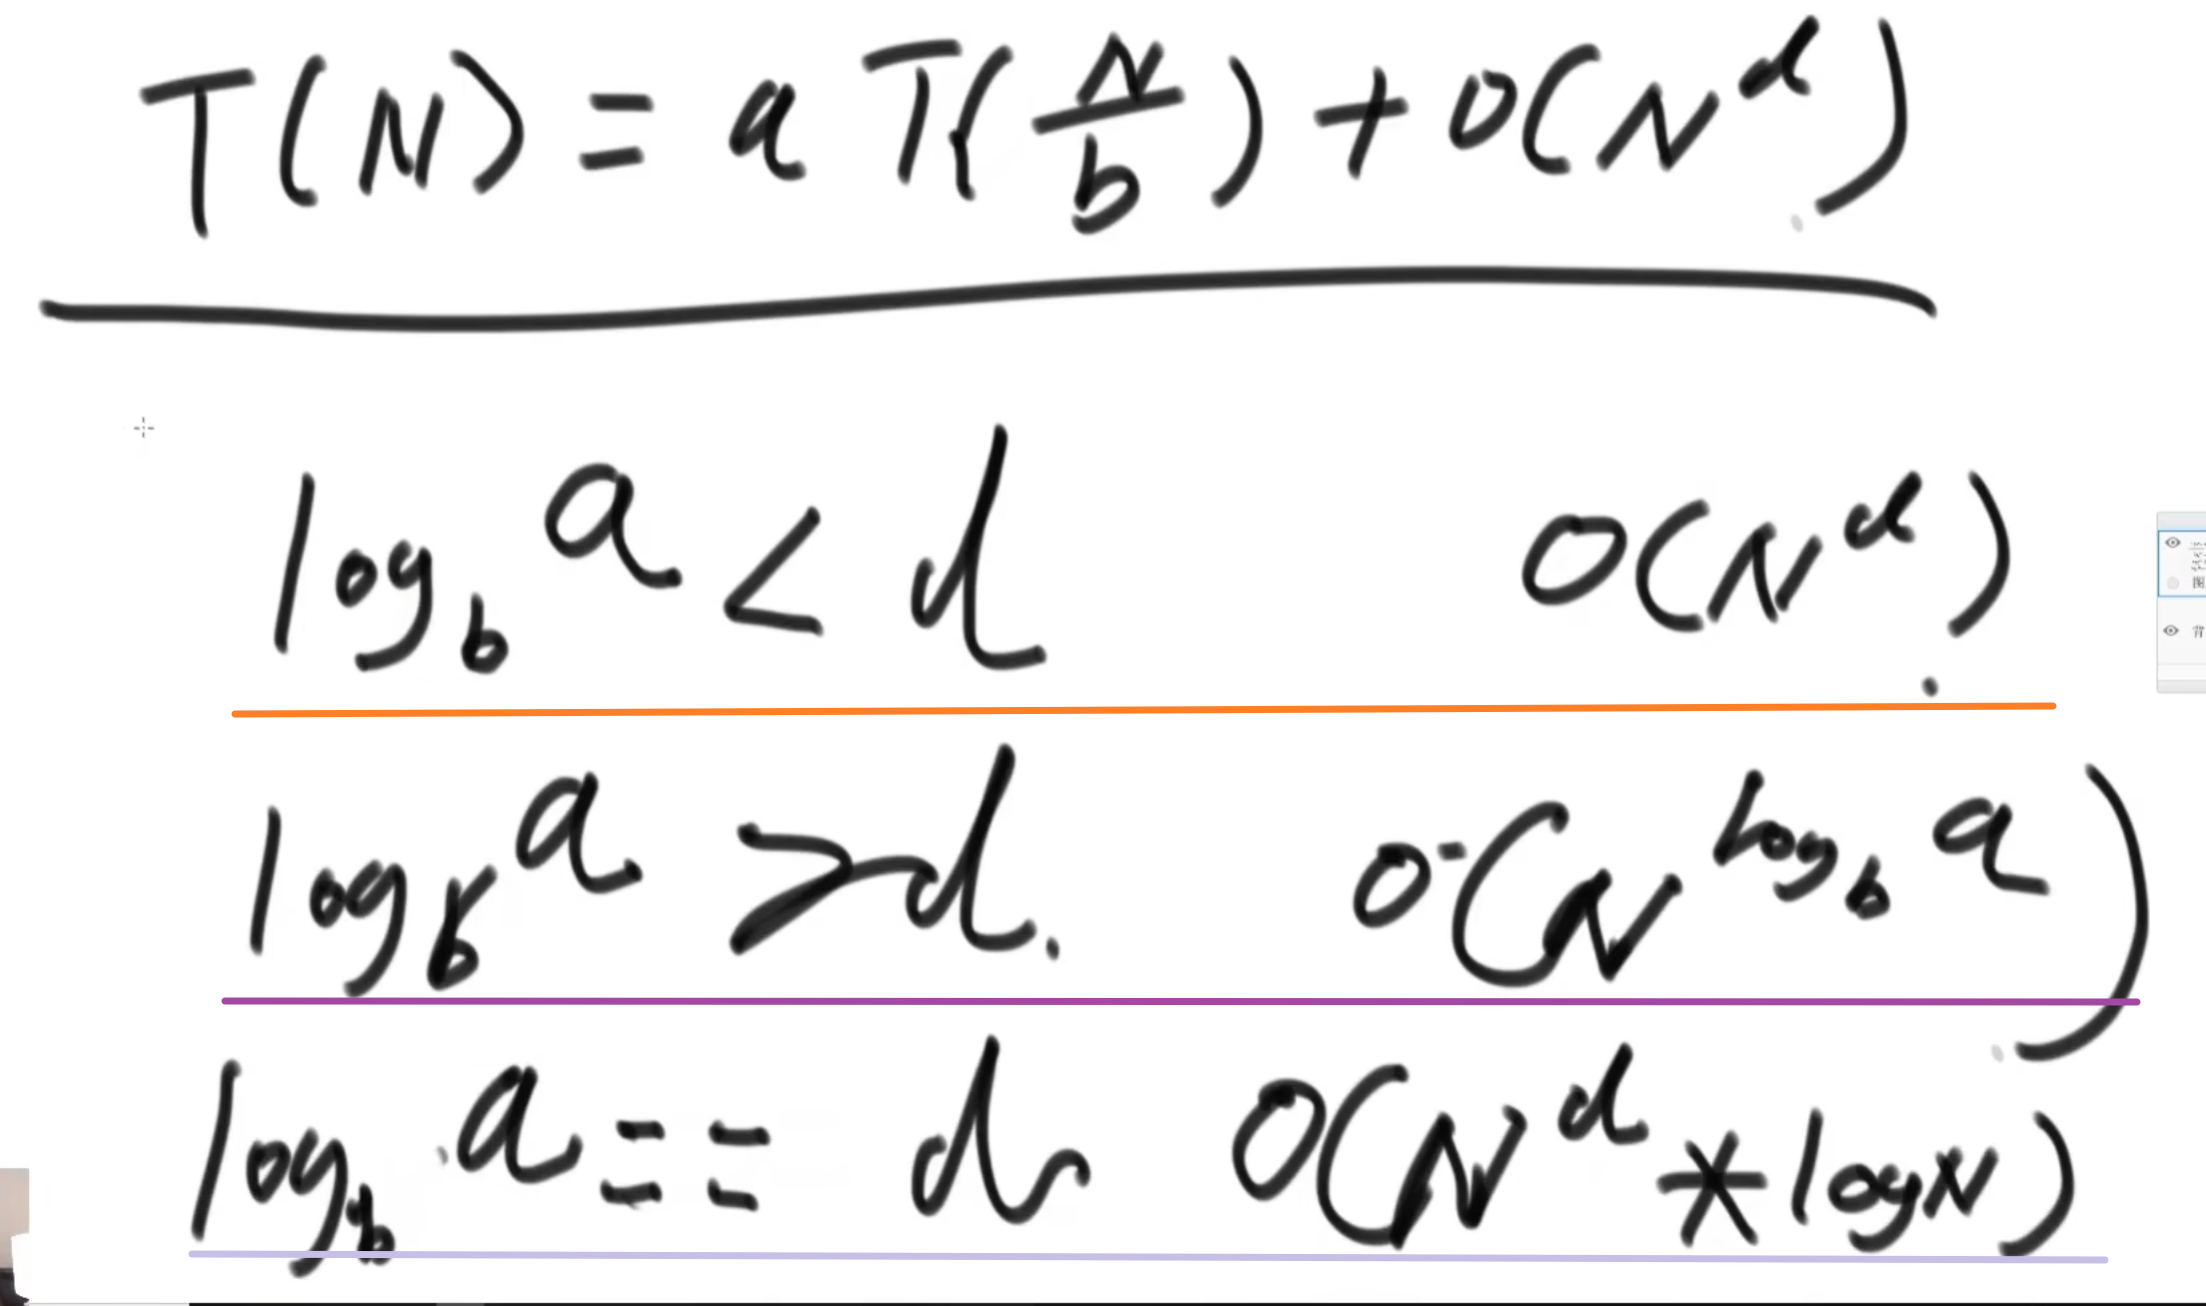 T(N) = a T(N/b) + O(N^d)
log_b a < d O(N^d)
log_b a > d. O(N^{log_b a})
log_b a == d O(N^d * logN)
图
背